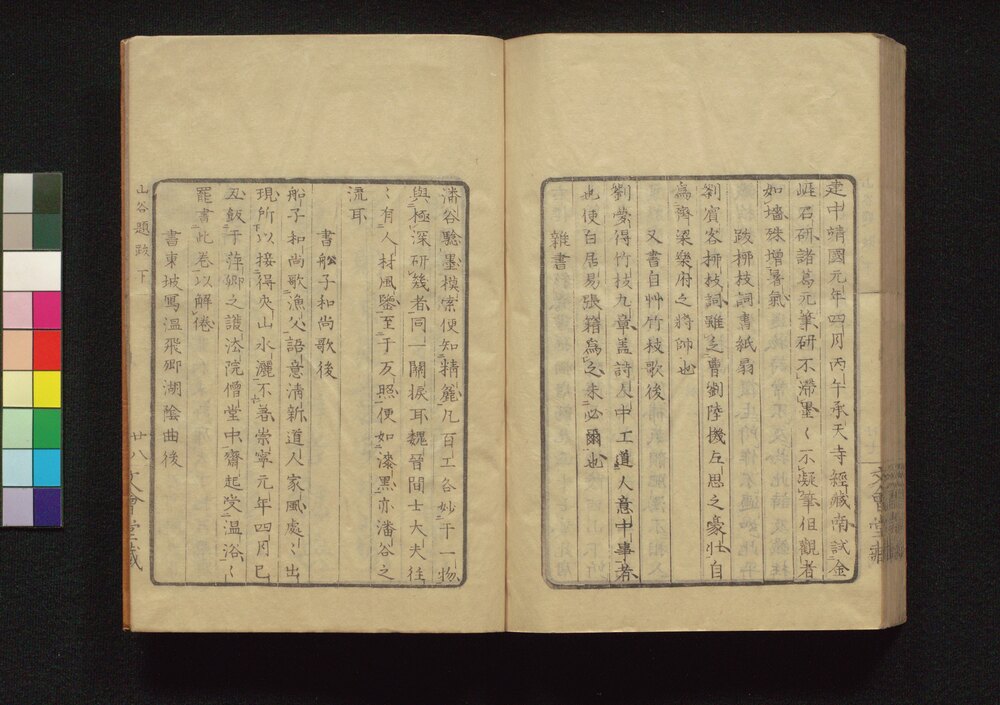 建中靖國元年四月丙午承天寺經藏南試金
崖石研諸葛元筆研不滯墨〻不凝筆但觀者
如墻殊增暑氣
跋㭨枝詞書紙扇
劉賓客㭨枝詞雖乏曹劉陸機左思之豪壮自
爲齊梁樂府之將帥也
又書自艸竹枝歌後
劉夢得竹枝九章蓋詩人中工道人意中事者
也使白居易張籍爲之未必爾也
雜書
文會堂藏
潘谷驗墨模索便知精麁凡百工各妙于一物
與極深研幾者同一關捩耳魏晉間士大夫往
〻有人材風鑒至于反照便如漆黑亦潘谷之
流耳
書船子和尚歌後
船子和尚歌漁父語意清新道人家風處〻出
現所以接得夾山水灑不着崇寧元年四月己
丑飯于萍鄉之護法院僧堂中齋起受温浴〻
罷書此卷以解倦
書東坡寫温飛卿湖陰曲後
山谷題跋 下
廿八 文會堂藏